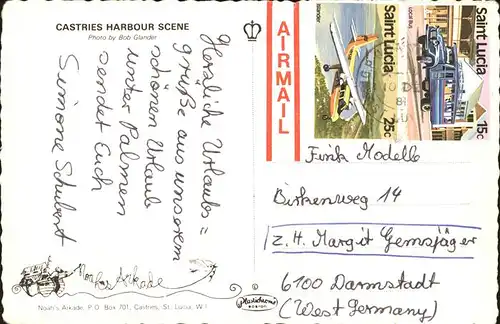 CASTRIES HARBOUR SCENE
Photo by Bob Glander
Herzliche Urlaubs=
grüße aus unserem
schönen Urlaub
unter Palmen
sendet Euch
Simone Schubert
Noahs Arkade
Noah's Arkade, P.O. Box 701, Castries, St. Lucia, W.I.
Plastichrome
AIRMAIL
Saint Lucia
Islander
25c
Saint Lucia
Local Bus
15c
Funk Modelle
Birkenweg 14
z. H. Margit Gemsjäger
6100 Darmstadt
(West Germany)